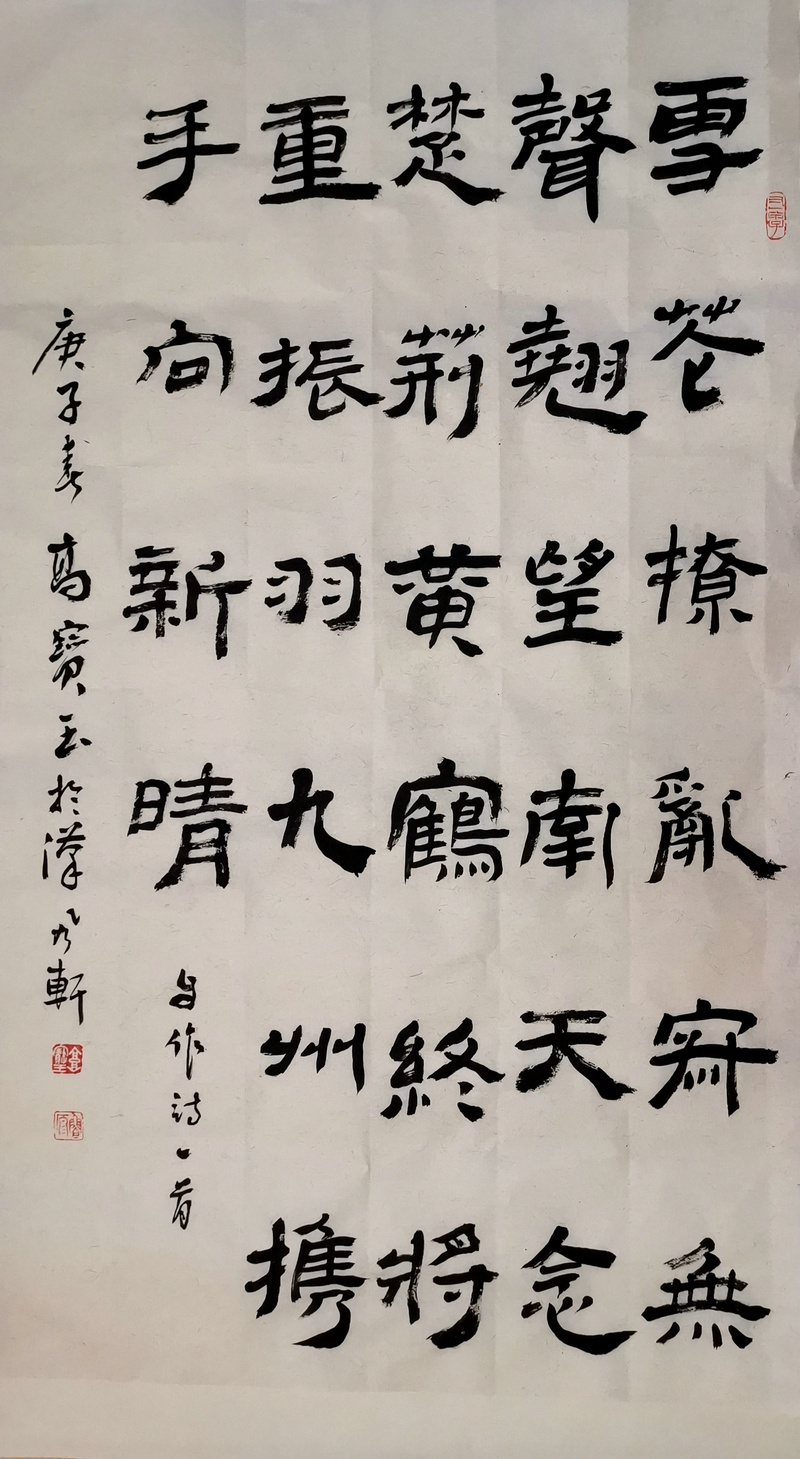 雪苍撩亂寂無
聲翹望南天念
楚荊黃鶴終將
重振羽九州攜
手向新晴
自作詩一首
庚子春高寶玉於漢風軒